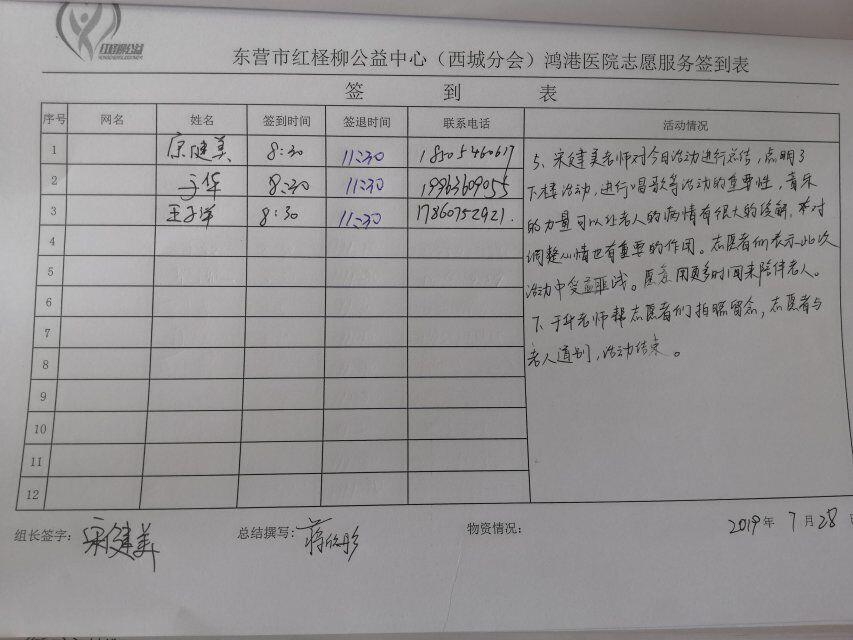 红柽柳公益
东营市红柽柳公益中心（西城分会）鸿港医院志愿服务签到表
签 到 表
序号 网名 姓名 签到时间 签退时间 联系电话 活动情况
1 宋健美 8:30 11:30 18505460617
2 于华 8:30 11:30 19963609055
3 王子洋 8:30 11:30 17860752921.
4
5
6
7
8
9
10
11
12
5、宋健美老师对今日活动进行总结，点明了
下楼活动，进行唱歌等活动的重要性，音乐
的力量可以让老人的病情有很大的缓解，并对
调整心情也有重要的作用。志愿者们表示此次
活动中受益匪浅。愿意用更多时间来陪伴老人。
于华老师帮志愿者们拍照留念，志愿者与
老人道别，活动结束。
组长签字：宋健美 总结撰写：蒋欣彤 物资情况： 2019年 7月28日